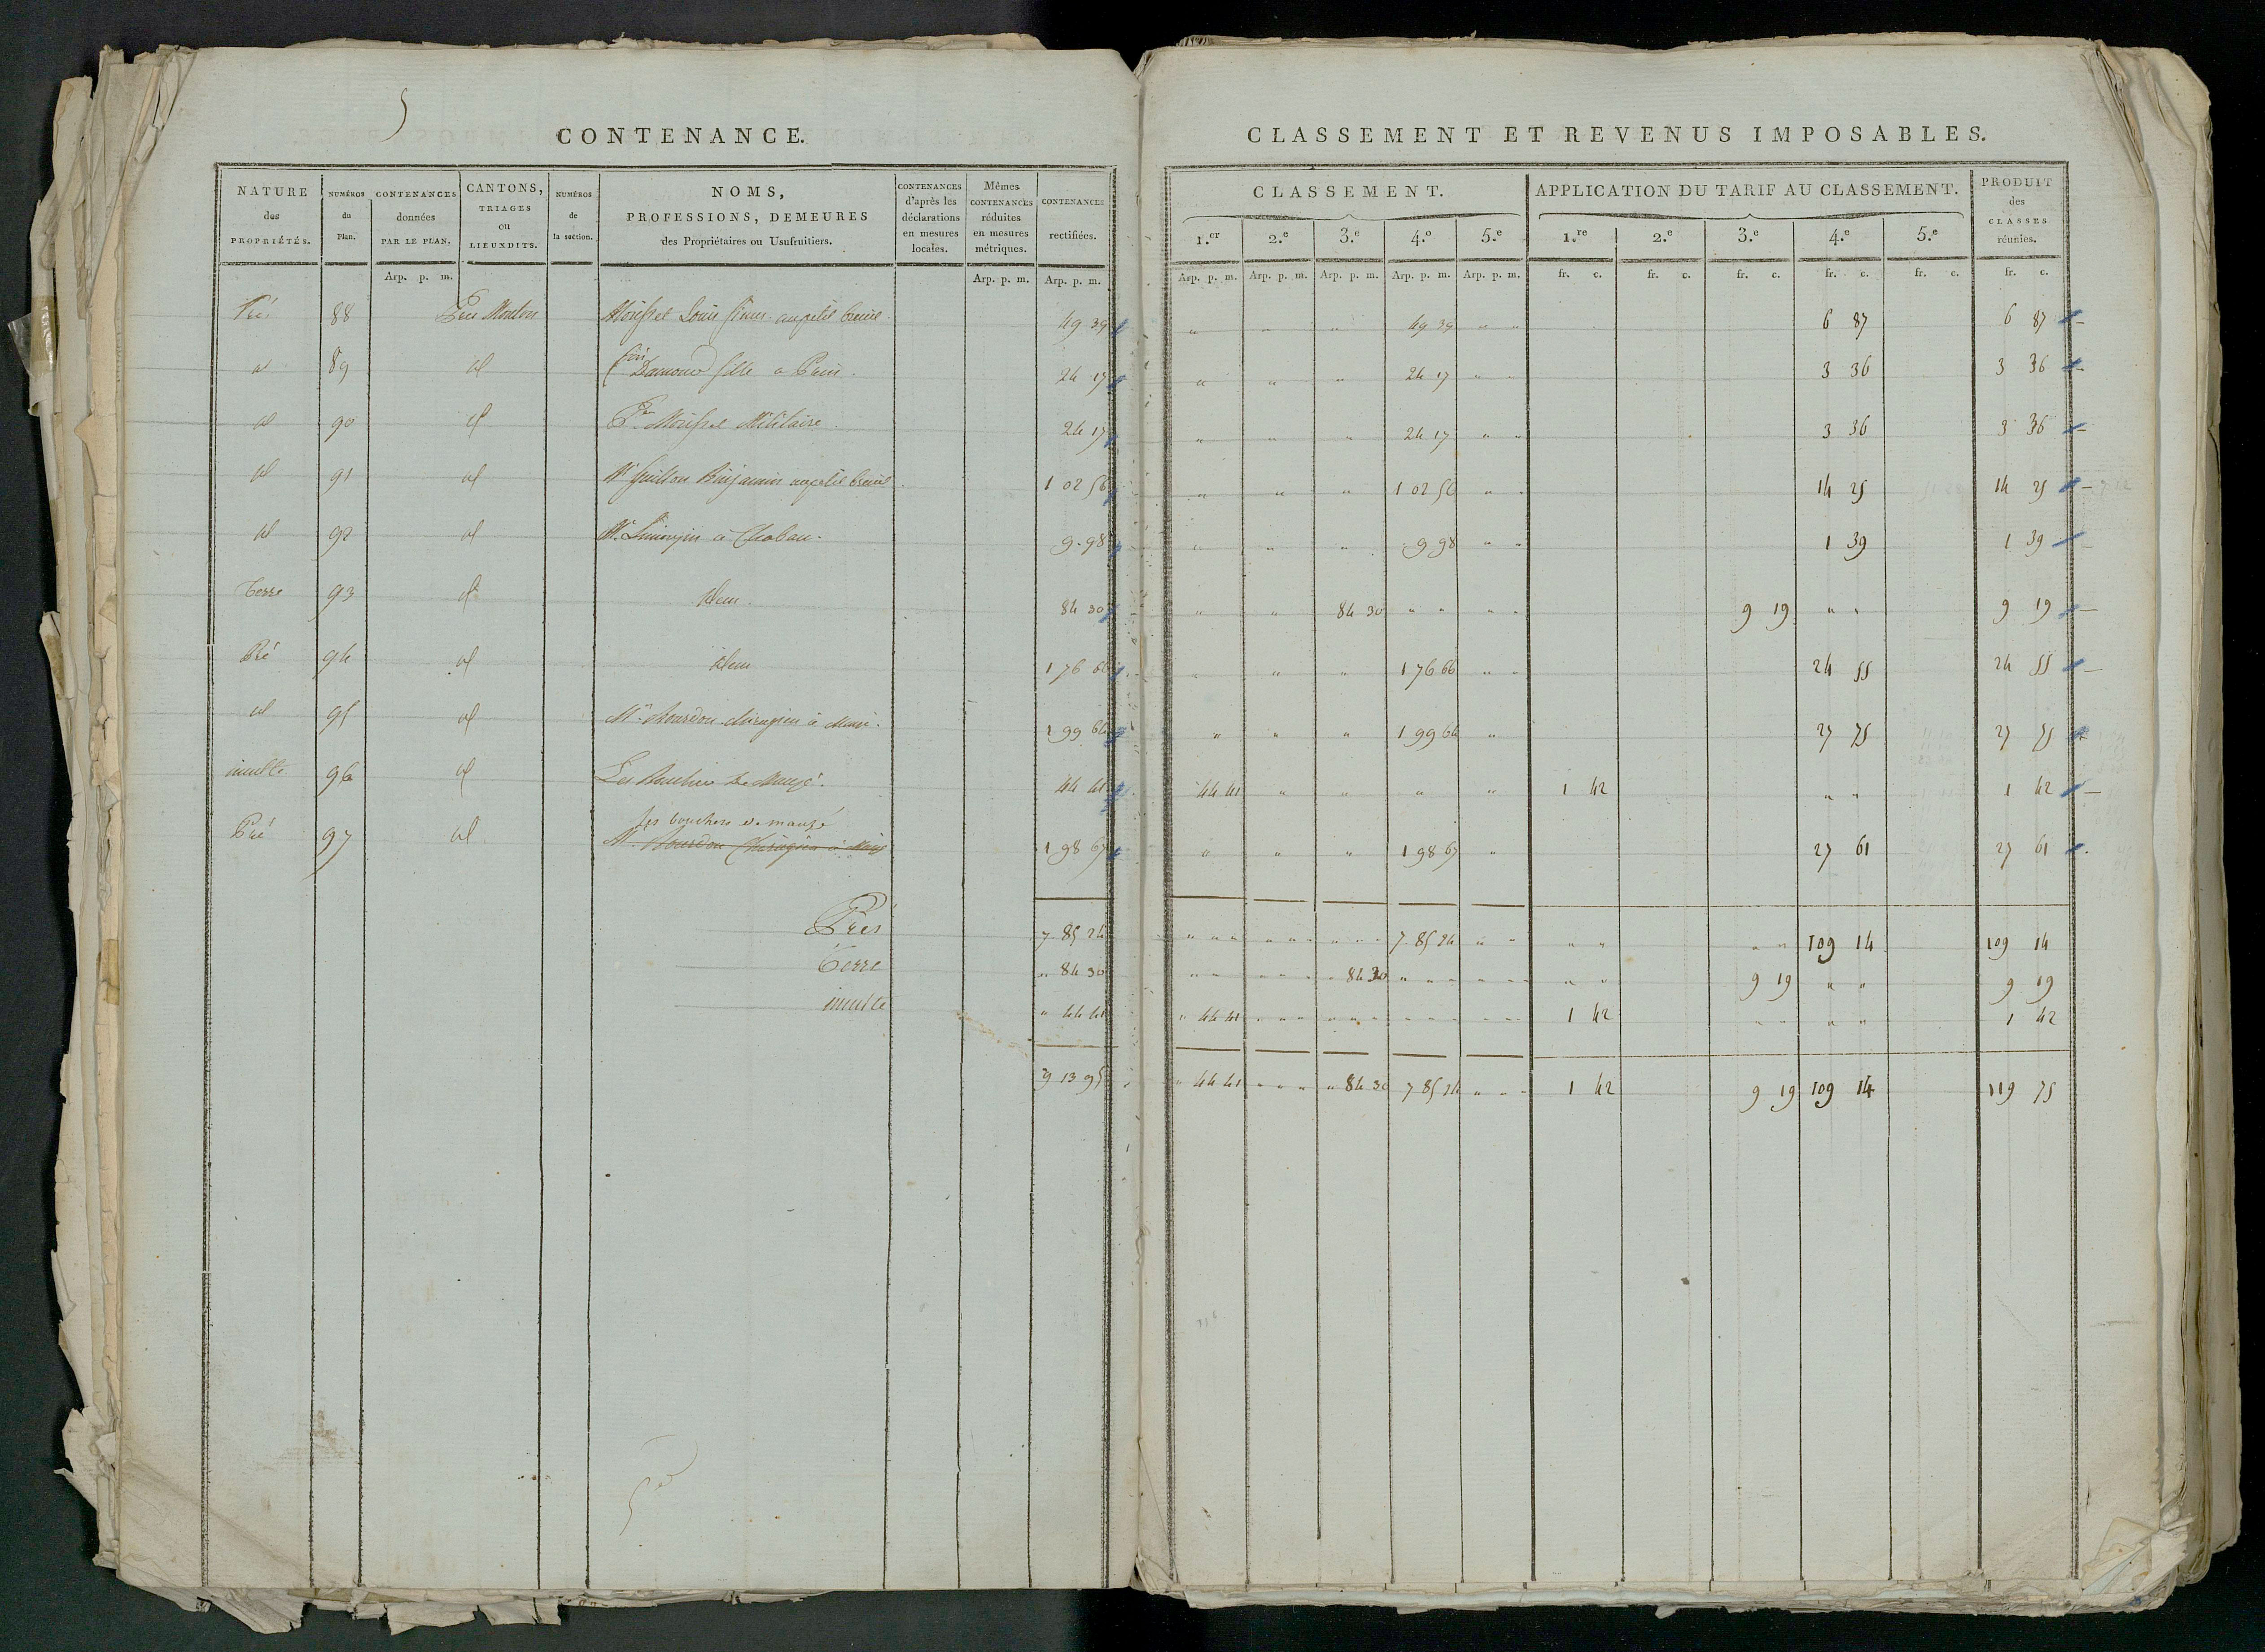 5
CONTENANCE.
NATURE des PROPRIÉTÉS. | NUMÉROS du Plan. | CONTENANCES données PAR LE PLAN. | CANTONS, TRIAGES OU LIEUXDITS. | NUMÉROS de la section. | NOMS, PROFESSIONS, DEMEURES des Propriétaires ou Usufruitiers. | CONTENANCES d'après les déclarations en mesures locales. | Mêmes CONTENANCES réduites en mesures métriques. | CONTENANCES rectifiées.
Arp. p. m. | Arp. p. m. | Arp. p. m.
Pré 88 Mouton Louis au petit breuil 49 39
id 89 id Damour fille a 24 17
id 90 id Militaire 24 17
id 91 id Mr Guillon Binjamin au petit breuil 1 02 56
id 92 id Mr. Limouzin à Chaban. 9 98
terre 93 id idem 84 30
Pré 94 id idem 1 76 66
id 95 id Mr. Bourdon chirugien à Mauzé. 1 99 64
inculte 96 id Les Bouchers de Mauzé. 44 41
les bouchers de mauzé
Pré 97 id Mr. Bourdon Chirugien à 1 98 67
Prés 7 85 24
terre " 84 30
inculte " 44 41
9 13 95
5
CLASSEMENT ET REVENUS IMPOSABLES.
CLASSEMENT. | APPLICATION DU TARIF AU CLASSEMENT. | PRODUIT des CLASSES réunies.
1.er 2.e 3.e 4.e 5.e 1.re 2.e 3.e 4.e 5.e
Arp. p. m. Arp. p. m. Arp. p. m. Arp. p. m. Arp. p. m. fr. c. fr. c. fr. c. fr. c. fr. c. fr. c.
" " " 49 39 " " 6 87 6 87
" " " 24 17 " " 3 36 3 36
" " " 24 17 " " 3 36 3 36
" " " 1 02 56 " " 14 25 14 25
" " " 9 98 " " 1 39 1 39
" " 84 30 " " " " 9 19 " " 9 19
" " " 1 76 66 " " 24 55 24 55
" " " 1 99 64 " 27 75 27 75
44 41 " " " " 1 42 " " 1 42
" " " 1 98 67 " 27 61 27 61
" " " " " " " " " 7 85 24 " " " " " " 109 14 109 14
" " " " " 84 30 " " " " " " " " 9 19 " " 9 19
" 44 41 " " " " " " " " " " " " 1 42 " " " " 1 42
" 44 41 " " " " 84 30 7 85 24 " " " 1 42 9 19 109 14 119 75